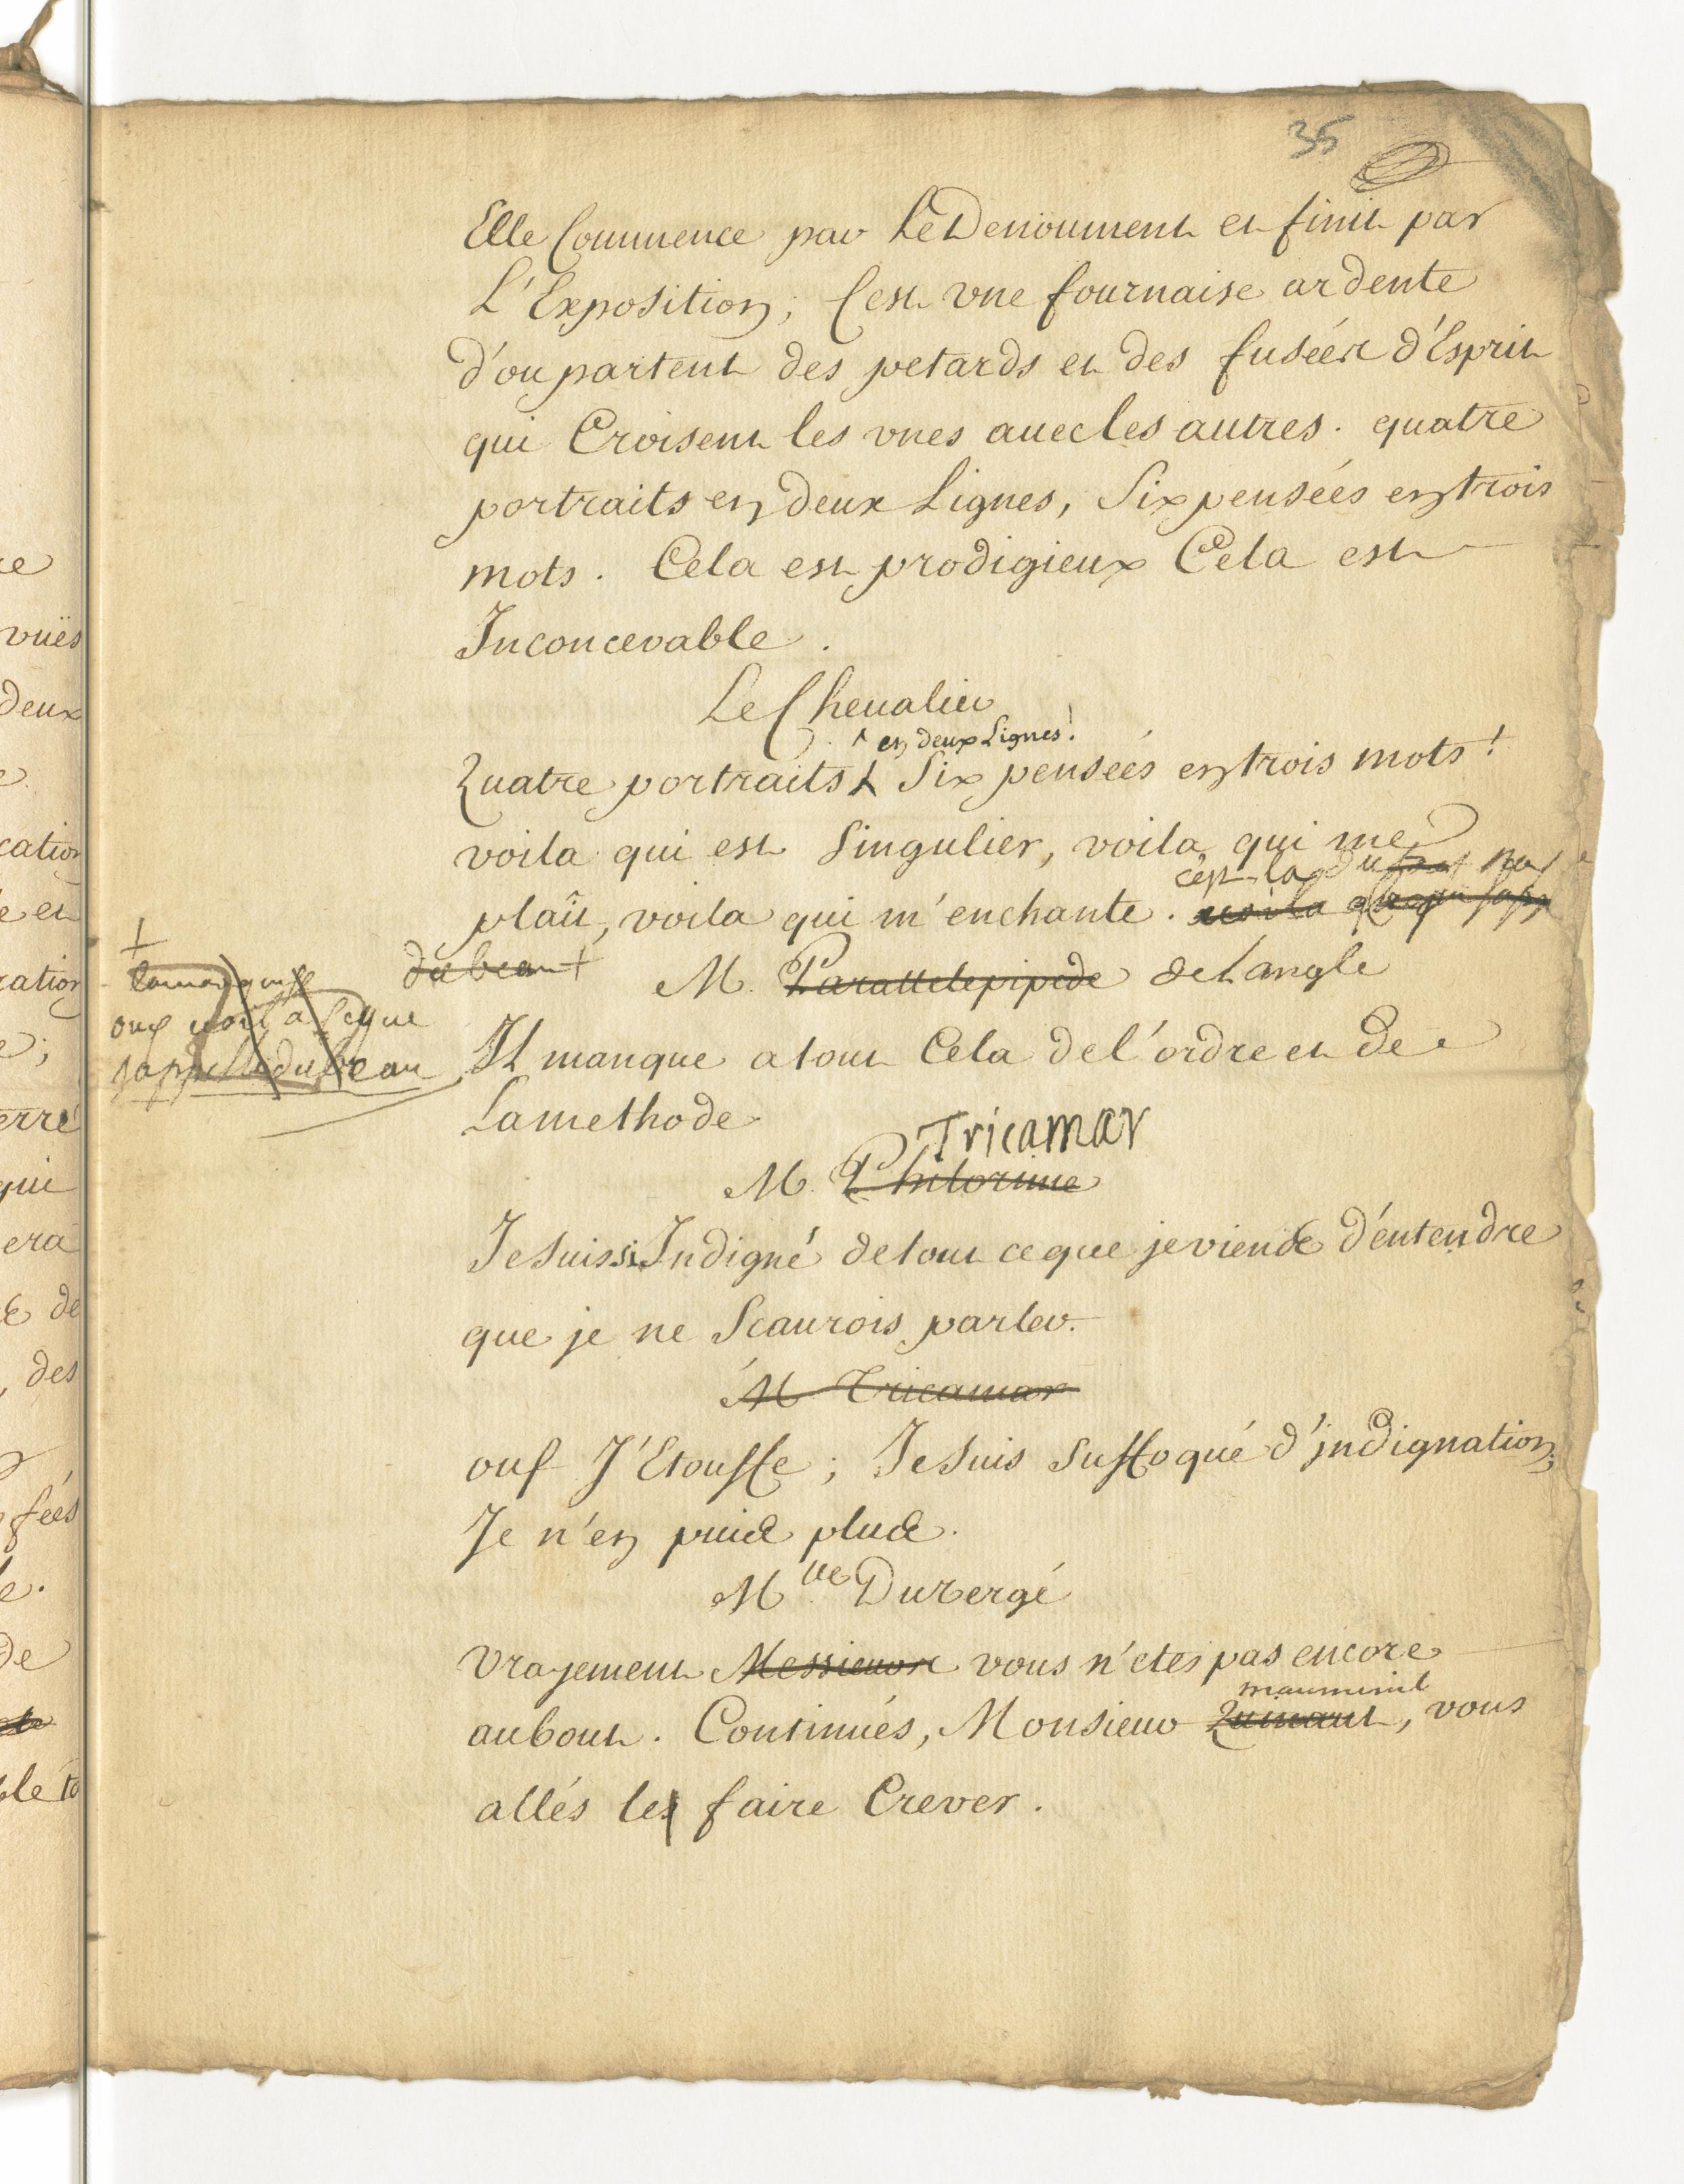 35
Elle Commence par Le Denoument et finit par
L'Exposition; C'est vne fournaise ardente
d'ou partent des petards et des fusées d'Esprit
qui Croisent les vnes auec les autres. quatre
portraits en deux Lignes, Six pensées en trois
mots. Cela est prodigieux Cela est
Inconcevable.
Le Cheualier
^ en deux Lignes!
Quatre portraits Six pensées en trois mots!
voila qui est Singulier, voila qui me
c'est la du
plaît, voila qui m'enchante. voila
du beau +
M. Parallelepipede de Langle
+
ouy voila Ce que
japelle du beau
Il manque a tout Cela de l'ordre et de
La methode
Tricamar
M. Philorime
Je Suis si Indigné de tout ce que je viens d'entendre
que je ne Scaurois parler.
M Tricamar
ouf J'Etouffe; Je Suis Suffoqué d'indignation,
Je n'en puis plus.
M.lle Duvergé
Vrayement Messieurs vous n'etes pas encore
mauminil
au bout. Continués, Monsieur, vous
allés les faire Crever.
ce
vuës
deux
cation
e et
ration
e;
erré
qui
era
de
, des
fées
e.
de